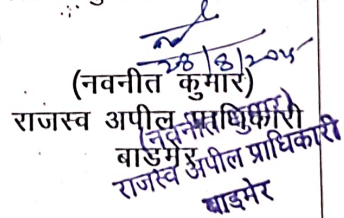 28/8/2025
(नवनीत कुमार)
राजस्व अपील प्राधिकारी
बाडमेर
(नवनीत कुमार)
राजस्व अपील प्राधिकारी
बाड़मेर